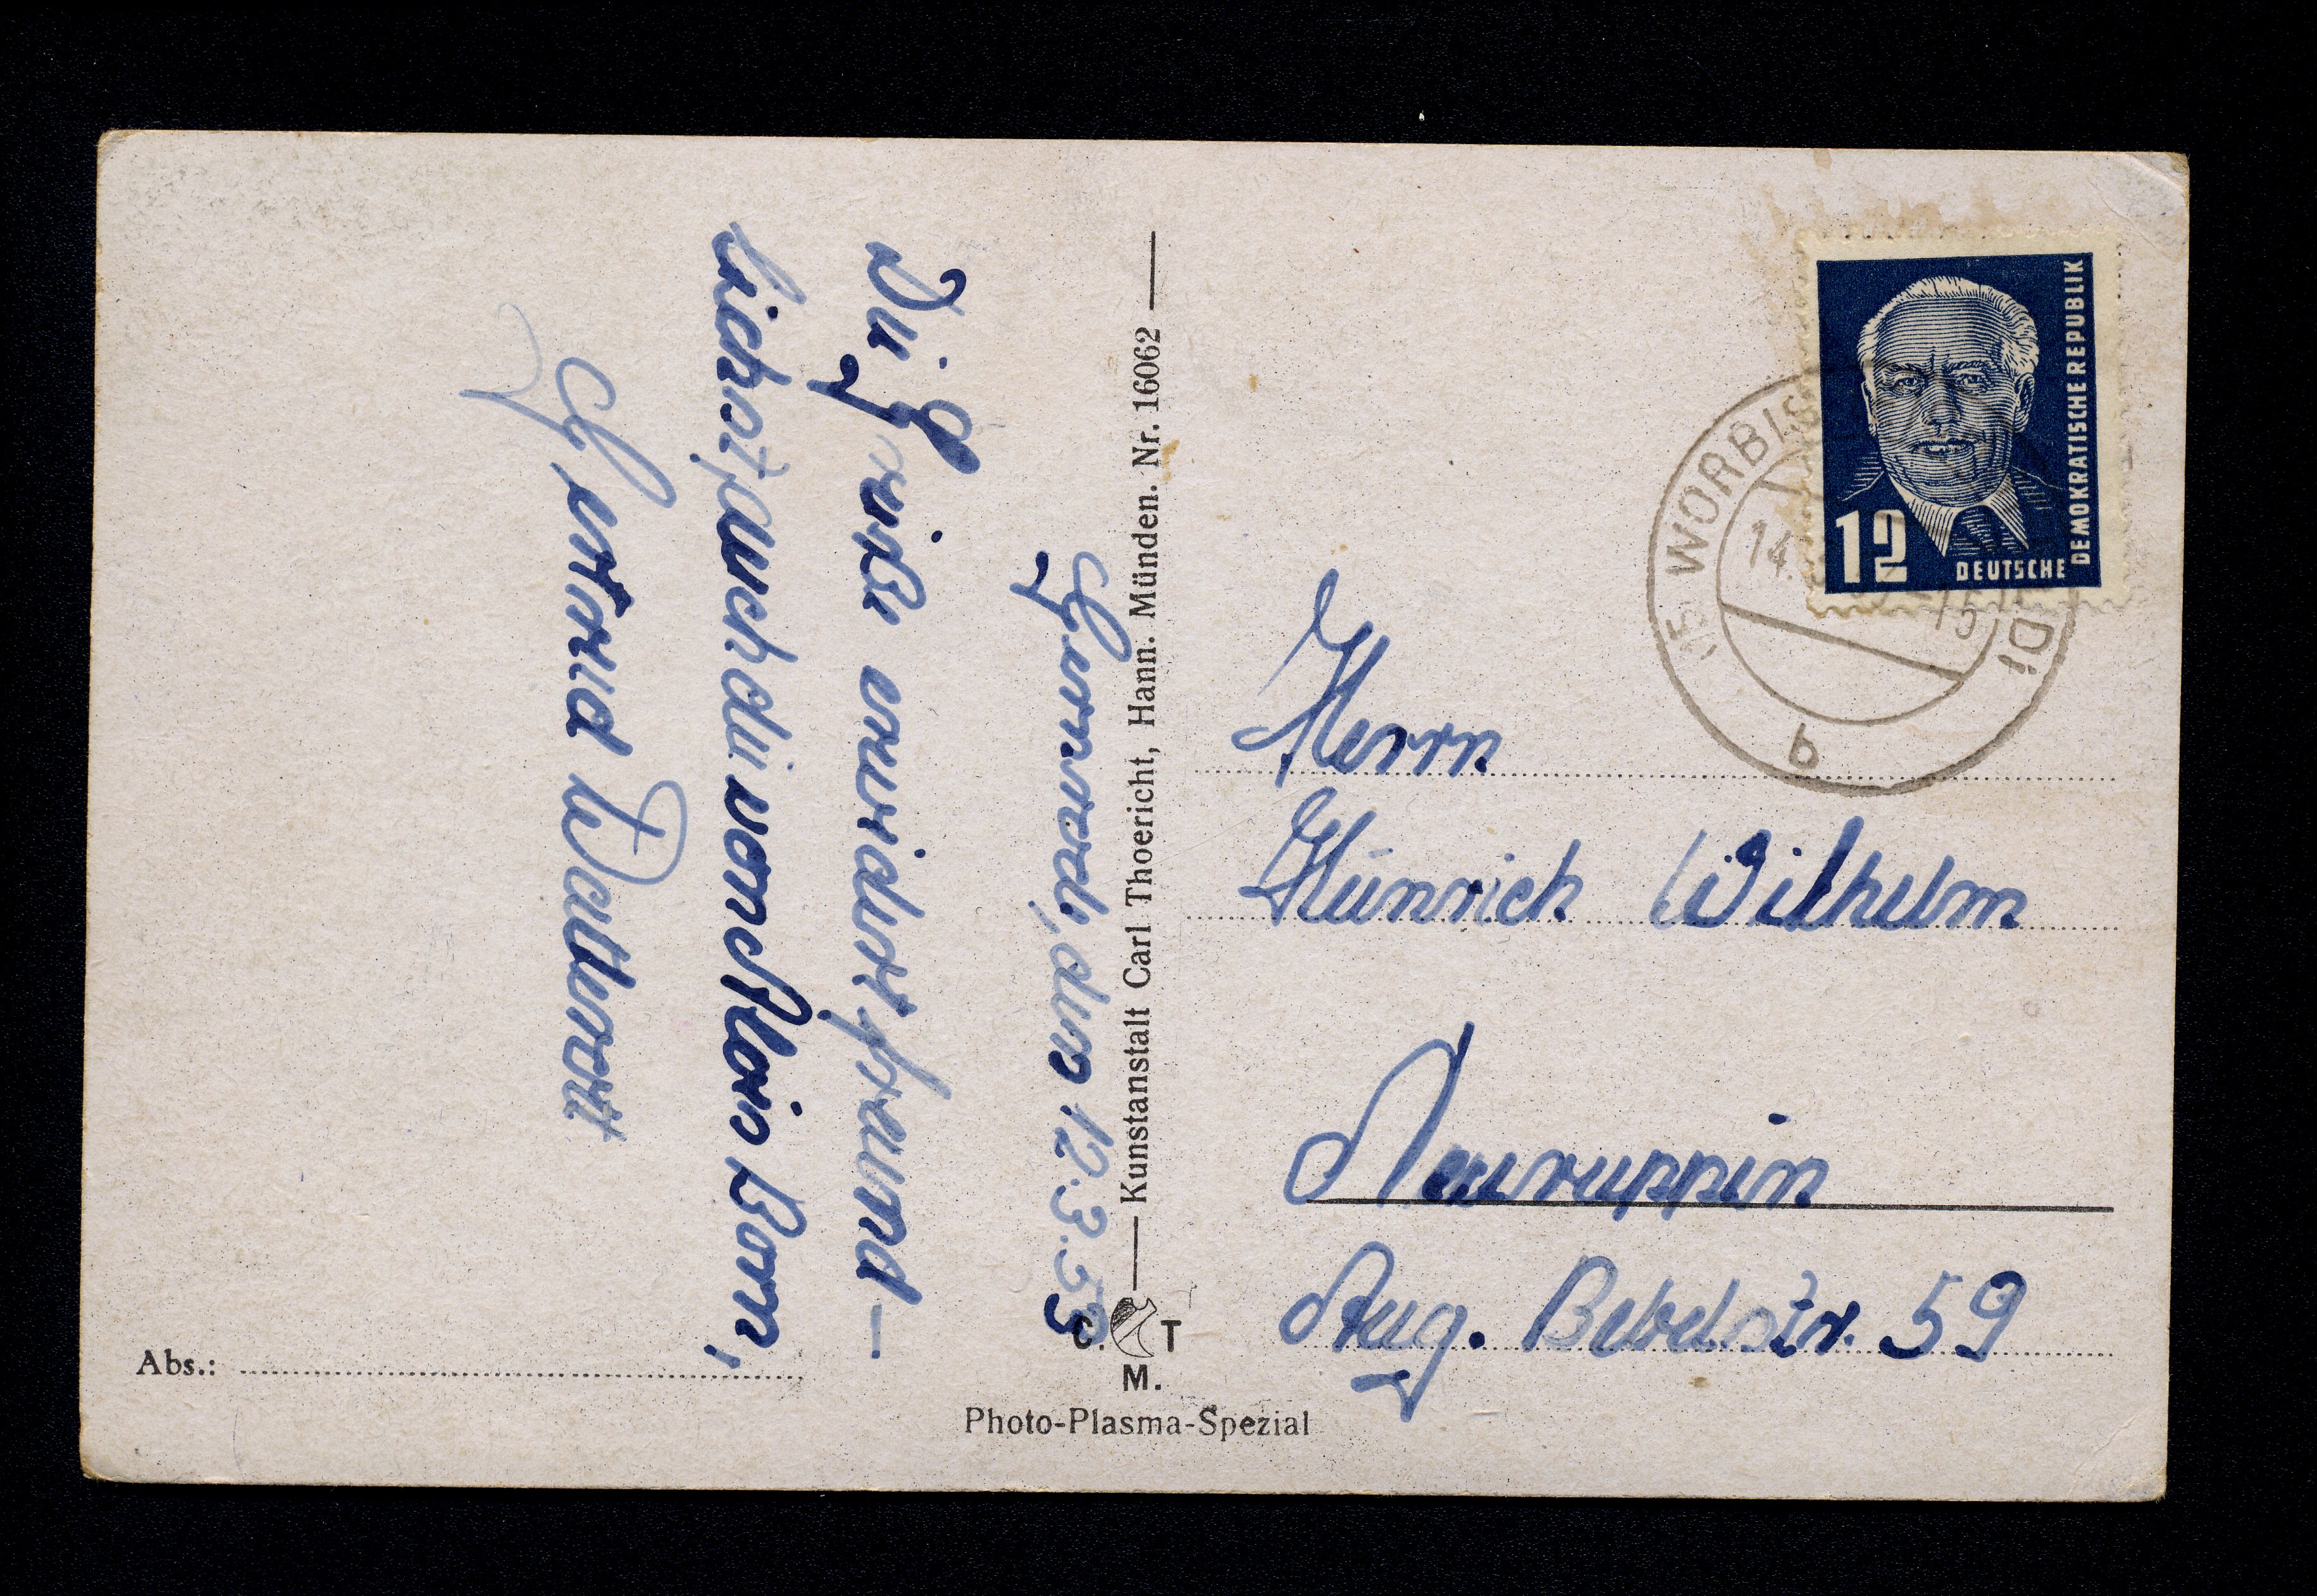 Gernrode, den 12.3.53
Die Grüße erwidert freund-
lichst, auch die von Klein Born,
Gertrud
Abs.:
Kunstanstalt Carl Thoericht, Hann. Münden. Nr. 16062
C. T
M.
Photo-Plasma-Spezial
DEUTSCHE DEMOKRATISCHE REPUBLIK
12
WORBIS
14.
b
Herrn
Heinrich Wilhelm
Neuruppin
Aug. Bebelstr. 59